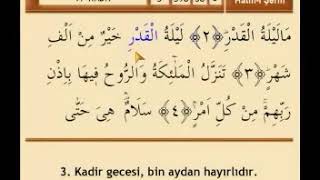 مَا لَيْلَةُ الْقَدْرِۜ ﴿٢﴾ لَيْلَةُ الْقَدْرِ خَيْرٌ مِنْ اَلْفِ
شَهْرٍۜ ﴿٣﴾ تَنَزَّلُ الْمَلٰٓئِكَةُ وَالرُّوحُ فِيهَا بِاِذْنِ
رَبِّهِمْۚ مِنْ كُلِّ اَمْرٍۙ ﴿٤﴾ سَلَامٌ۠ هِيَ حَتّٰى
3. Kadir gecesi, bin aydan hayırlıdır.